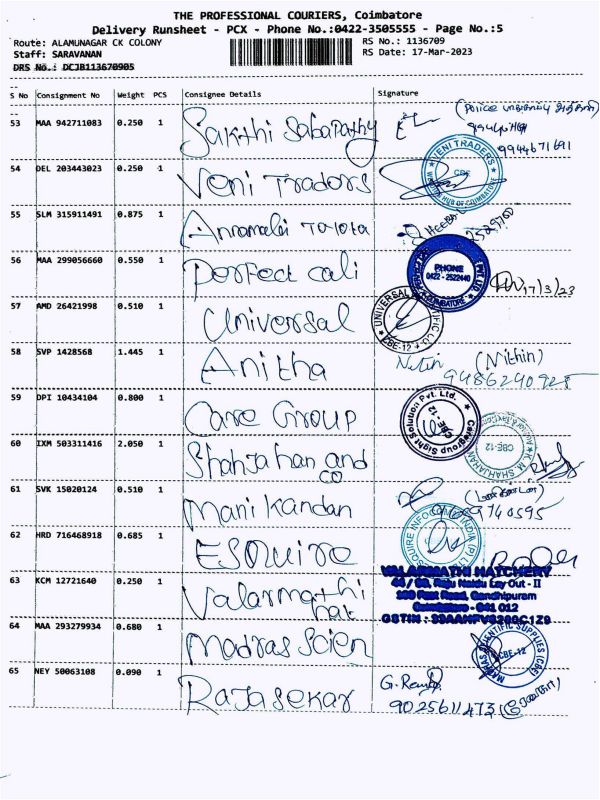 THE PROFESSIONAL COURIERS, Coimbatore
Delivery Runsheet - PCX - Phone No.:0422-3505555 - Page No.:5
Route: ALAMUNAGAR CK COLONY RS No.: 1136709
Staff: SARAVANAN RS Date: 17-Mar-2023
DRS No.: DCJB113670905
S No Consignment No Weight PCS Consignee Details Signature
53 MAA 942711083 0.250 1 Sakthi Sabapathy
9944671691
54 DEL 203443023 0.250 1 Veni Tradors
VENI TRADERS
55 SLM 315911491 0.875 1 Annamalai Toyota
56 MAA 299056660 0.550 1 Perfect cali
PHONE
0422 - 2522440
17/3/23
57 AMD 26421998 0.510 1 Universal
UNIVERSAL
CBE-12
58 SVP 1428568 1.445 1 Anitha
Nitin (Nithin)
59 DPI 10434104 0.800 1 Care Group
Caregroup Sight Solution Pvt. Ltd.
CBE-12
60 IXM 503311416 2.050 1 Shahjahan and
co
CBE-12
61 SVK 15020124 0.510 1 Mani Kandan
62 HRD 716468918 0.685 1 ESquire
63 KCM 12721640 0.250 1 Valarmathi
hat
VALARMATHI HATCHERY
Raju Naidu Lay Out - II
100 Feet Road, Gandhipuram
Coimbatore - 641 012
64 MAA 293279934 0.680 1 Madras Scien
MADRAS SCIENTIFIC SUPPLIES (CBE)
CBE-12
65 NEY 50063108 0.090 1 Rajasekar
9025611473